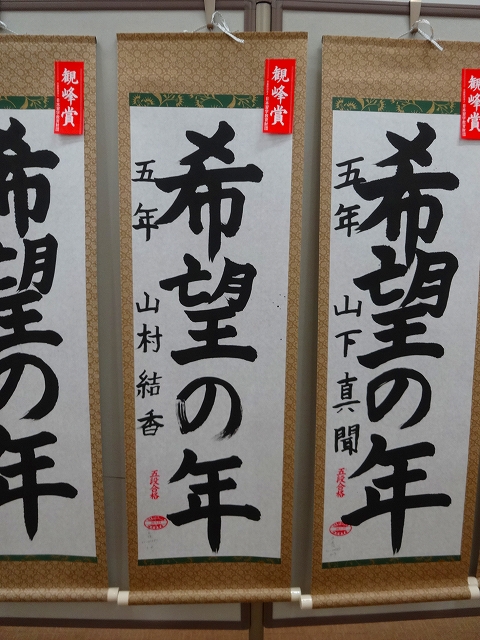 観峰賞
希望の年
五年 山下真聞
五段合格
観峰賞
希望の年
五年 山村結香
五段合格
観峰賞
希望の年